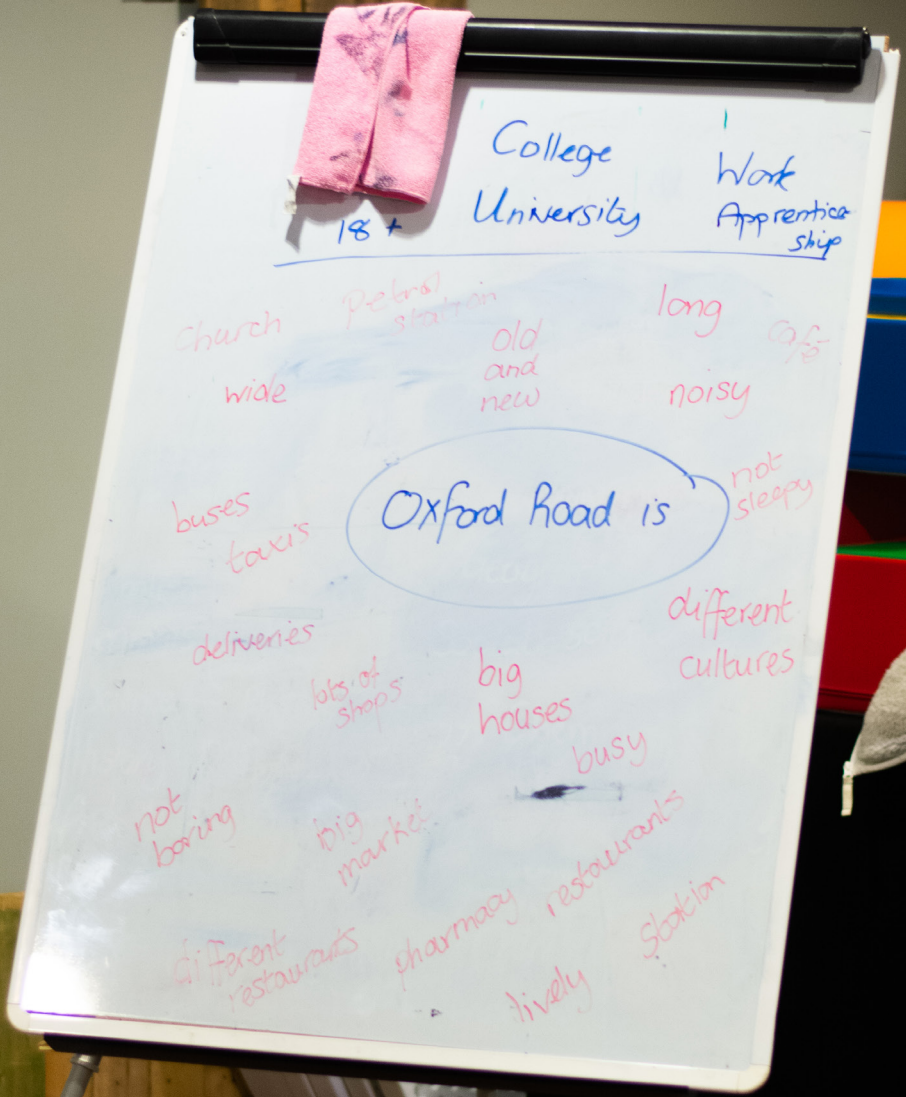 College
University
Work
Apprentice
ship
18+
church
Petrol
station
old
and
new
long
café
wide
noisy
Oxford Road is
not
sleepy
buses
taxis
deliveries
different
cultures
lots of
shops
big
houses
busy
not
boring
big
market
restaurants
different
restaurants
pharmacy
station
lively